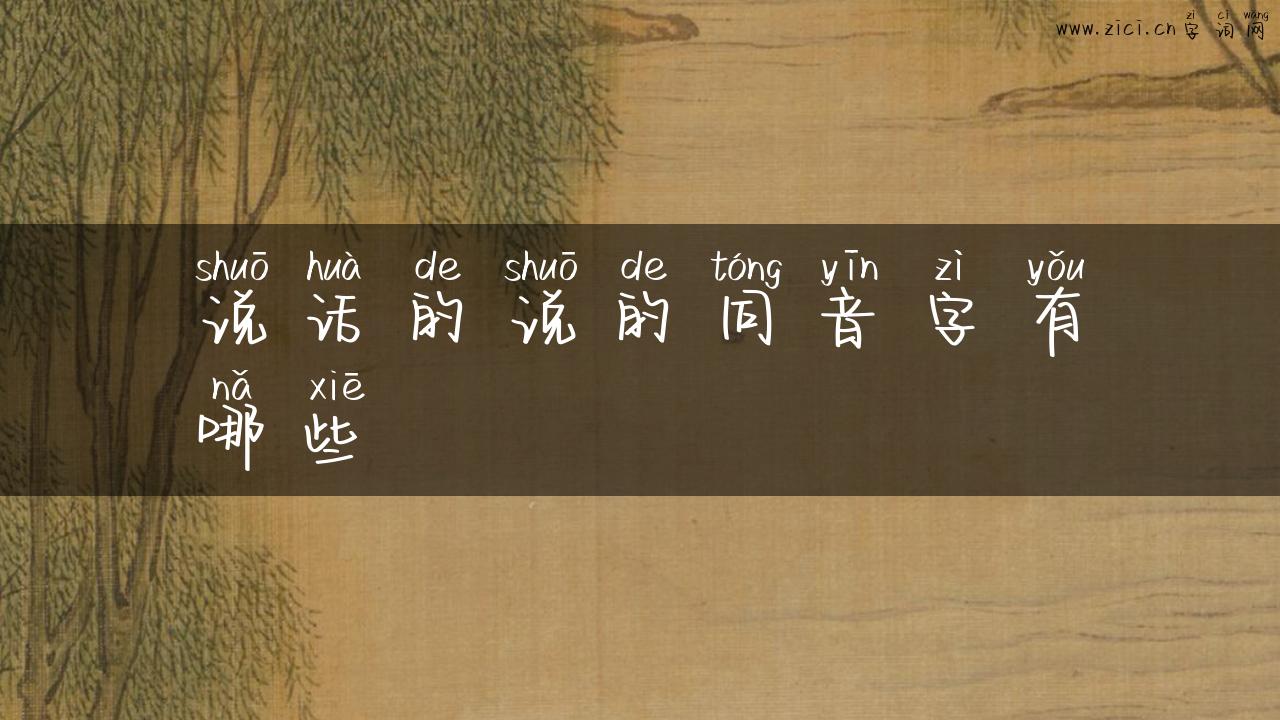 zì cí wǎng
www.zici.cn 字词网
shuō huà de shuō de tóng yīn zì yǒu
说话的说的同音字有
nǎ xiē
哪些